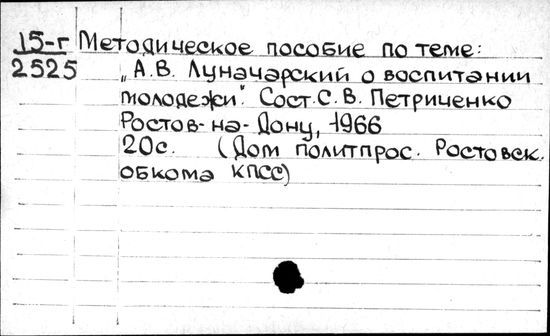 15-г Методическое пособие по теме:
2525 „А.В. Луначарский о воспитании
молодежи". Сост. С. В. Петриченко
Ростов-на-Дону, 1966
20с. (Дом политпрос. Ростовск.
обкома КПСС)